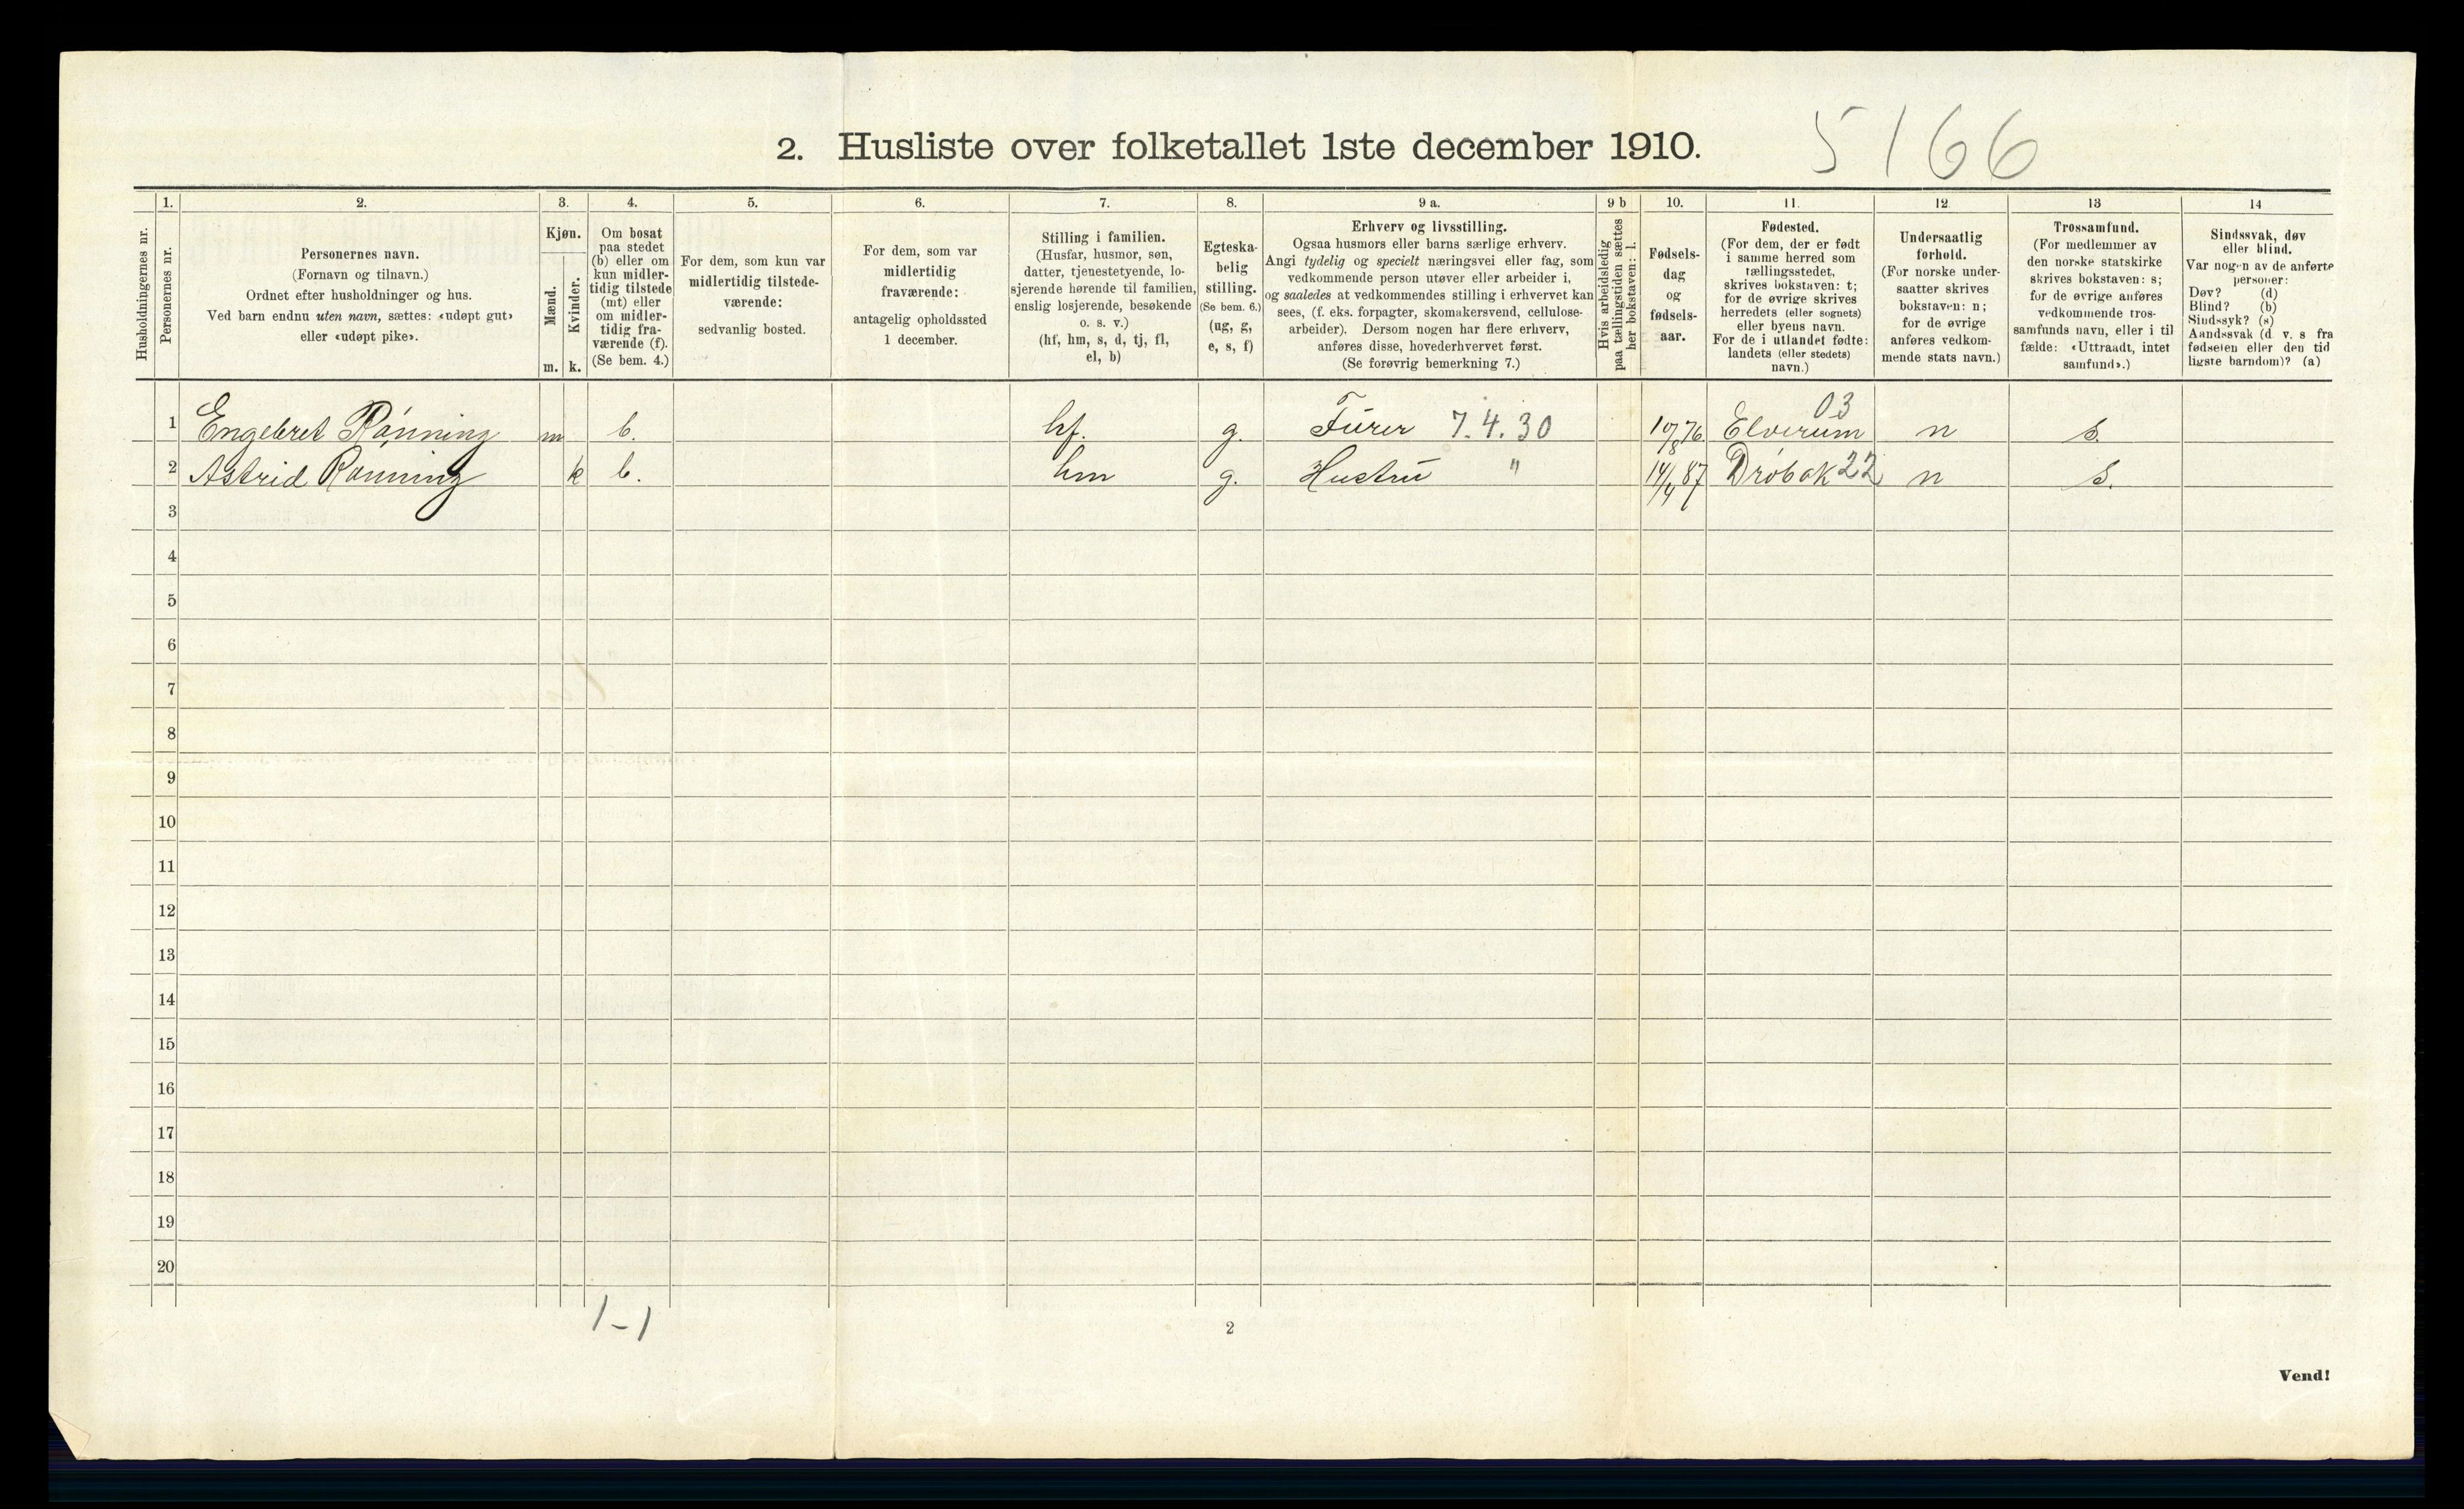 2. Husliste over folketallet 1ste december 1910.
5166
Husholdningernes nr.
1.
Personernes nr.
2.
Personernes navn.
(Fornavn og tilnavn.)
Ordnet efter husholdninger og hus.
Ved barn endnu uten navn, sættes: «udøpt gut»
eller «udøpt pike».
3.
Kjøn.
Mænd.
Kvinder.
m.
k.
4.
Om bosat
paa stedet
(b) eller om
kun midler-
tidig tilstede
(mt) eller
om midler-
tidig fra-
værende (f).
(Se bem. 4.)
5.
For dem, som kun var
midlertidig tilstede-
værende:
sedvanlig bosted.
6.
For dem, som var
midlertidig
fraværende:
antagelig opholdssted
1 december.
7.
Stilling i familien.
(Husfar, husmor, søn,
datter, tjenestetyende, lo-
sjerende hørende til familien,
enslig losjerende, besøkende
o. s. v.)
(hf, hm, s, d, tj, fl,
el, b)
8.
Egteska-
belig
stilling.
(Se bem. 6.)
(ug, g,
e, s, f)
9 a.
Erhverv og livsstilling.
Ogsaa husmors eller barns særlige erhverv.
Angi tydelig og specielt næringsvei eller fag, som
vedkommende person utøver eller arbeider i,
og saaledes at vedkommendes stilling i erhvervet kan
sees, (f. eks. forpagter, skomakersvend, cellulose-
arbeider). Dersom nogen har flere erhverv,
anføres disse, hovederhvervet først.
(Se forøvrig bemerkning 7.)
9 b
Hvis arbeidsledig
paa tællingstiden sættes
her bokstaven: l.
10.
Fødsels-
dag
og
fødsels-
aar.
11.
Fødested.
(For dem, der er født
i samme herred som
tællingsstedet,
skrives bokstaven: t;
for de øvrige skrives
herredets (eller sognets)
eller byens navn.
For de i utlandet fødte:
landets (eller stedets)
navn.)
12.
Undersaatlig
forhold.
(For norske under-
saatter skrives
bokstaven: n;
for de øvrige
anføres vedkom-
mende stats navn.)
13
Trossamfund.
(For medlemmer av
den norske statskirke
skrives bokstaven: s;
for de øvrige anføres
vedkommende tros-
samfunds navn, eller i til
fælde: «Uttraadt, intet
samfund».)
14
Sindssvak, døv
eller blind.
Var nogen av de anførte
personer:
Døv? (d)
Blind? (b)
Sindssyk? (s)
Aandssvak (d. v. s. fra
fødselen eller den tid
ligste barndom)? (a)
03
1 Engebret Rønning m b. hf. g. Fürer 7.4.30 10/8 76 Elverum n s.
2 Astrid Rønning k b. hm g. Hustru " 14/4 87 Drøbak 22 n s.
3
4
5
6
7
8
9
10
11
12
13
14
15
16
17
18
19
20
1-1
2
Vend!